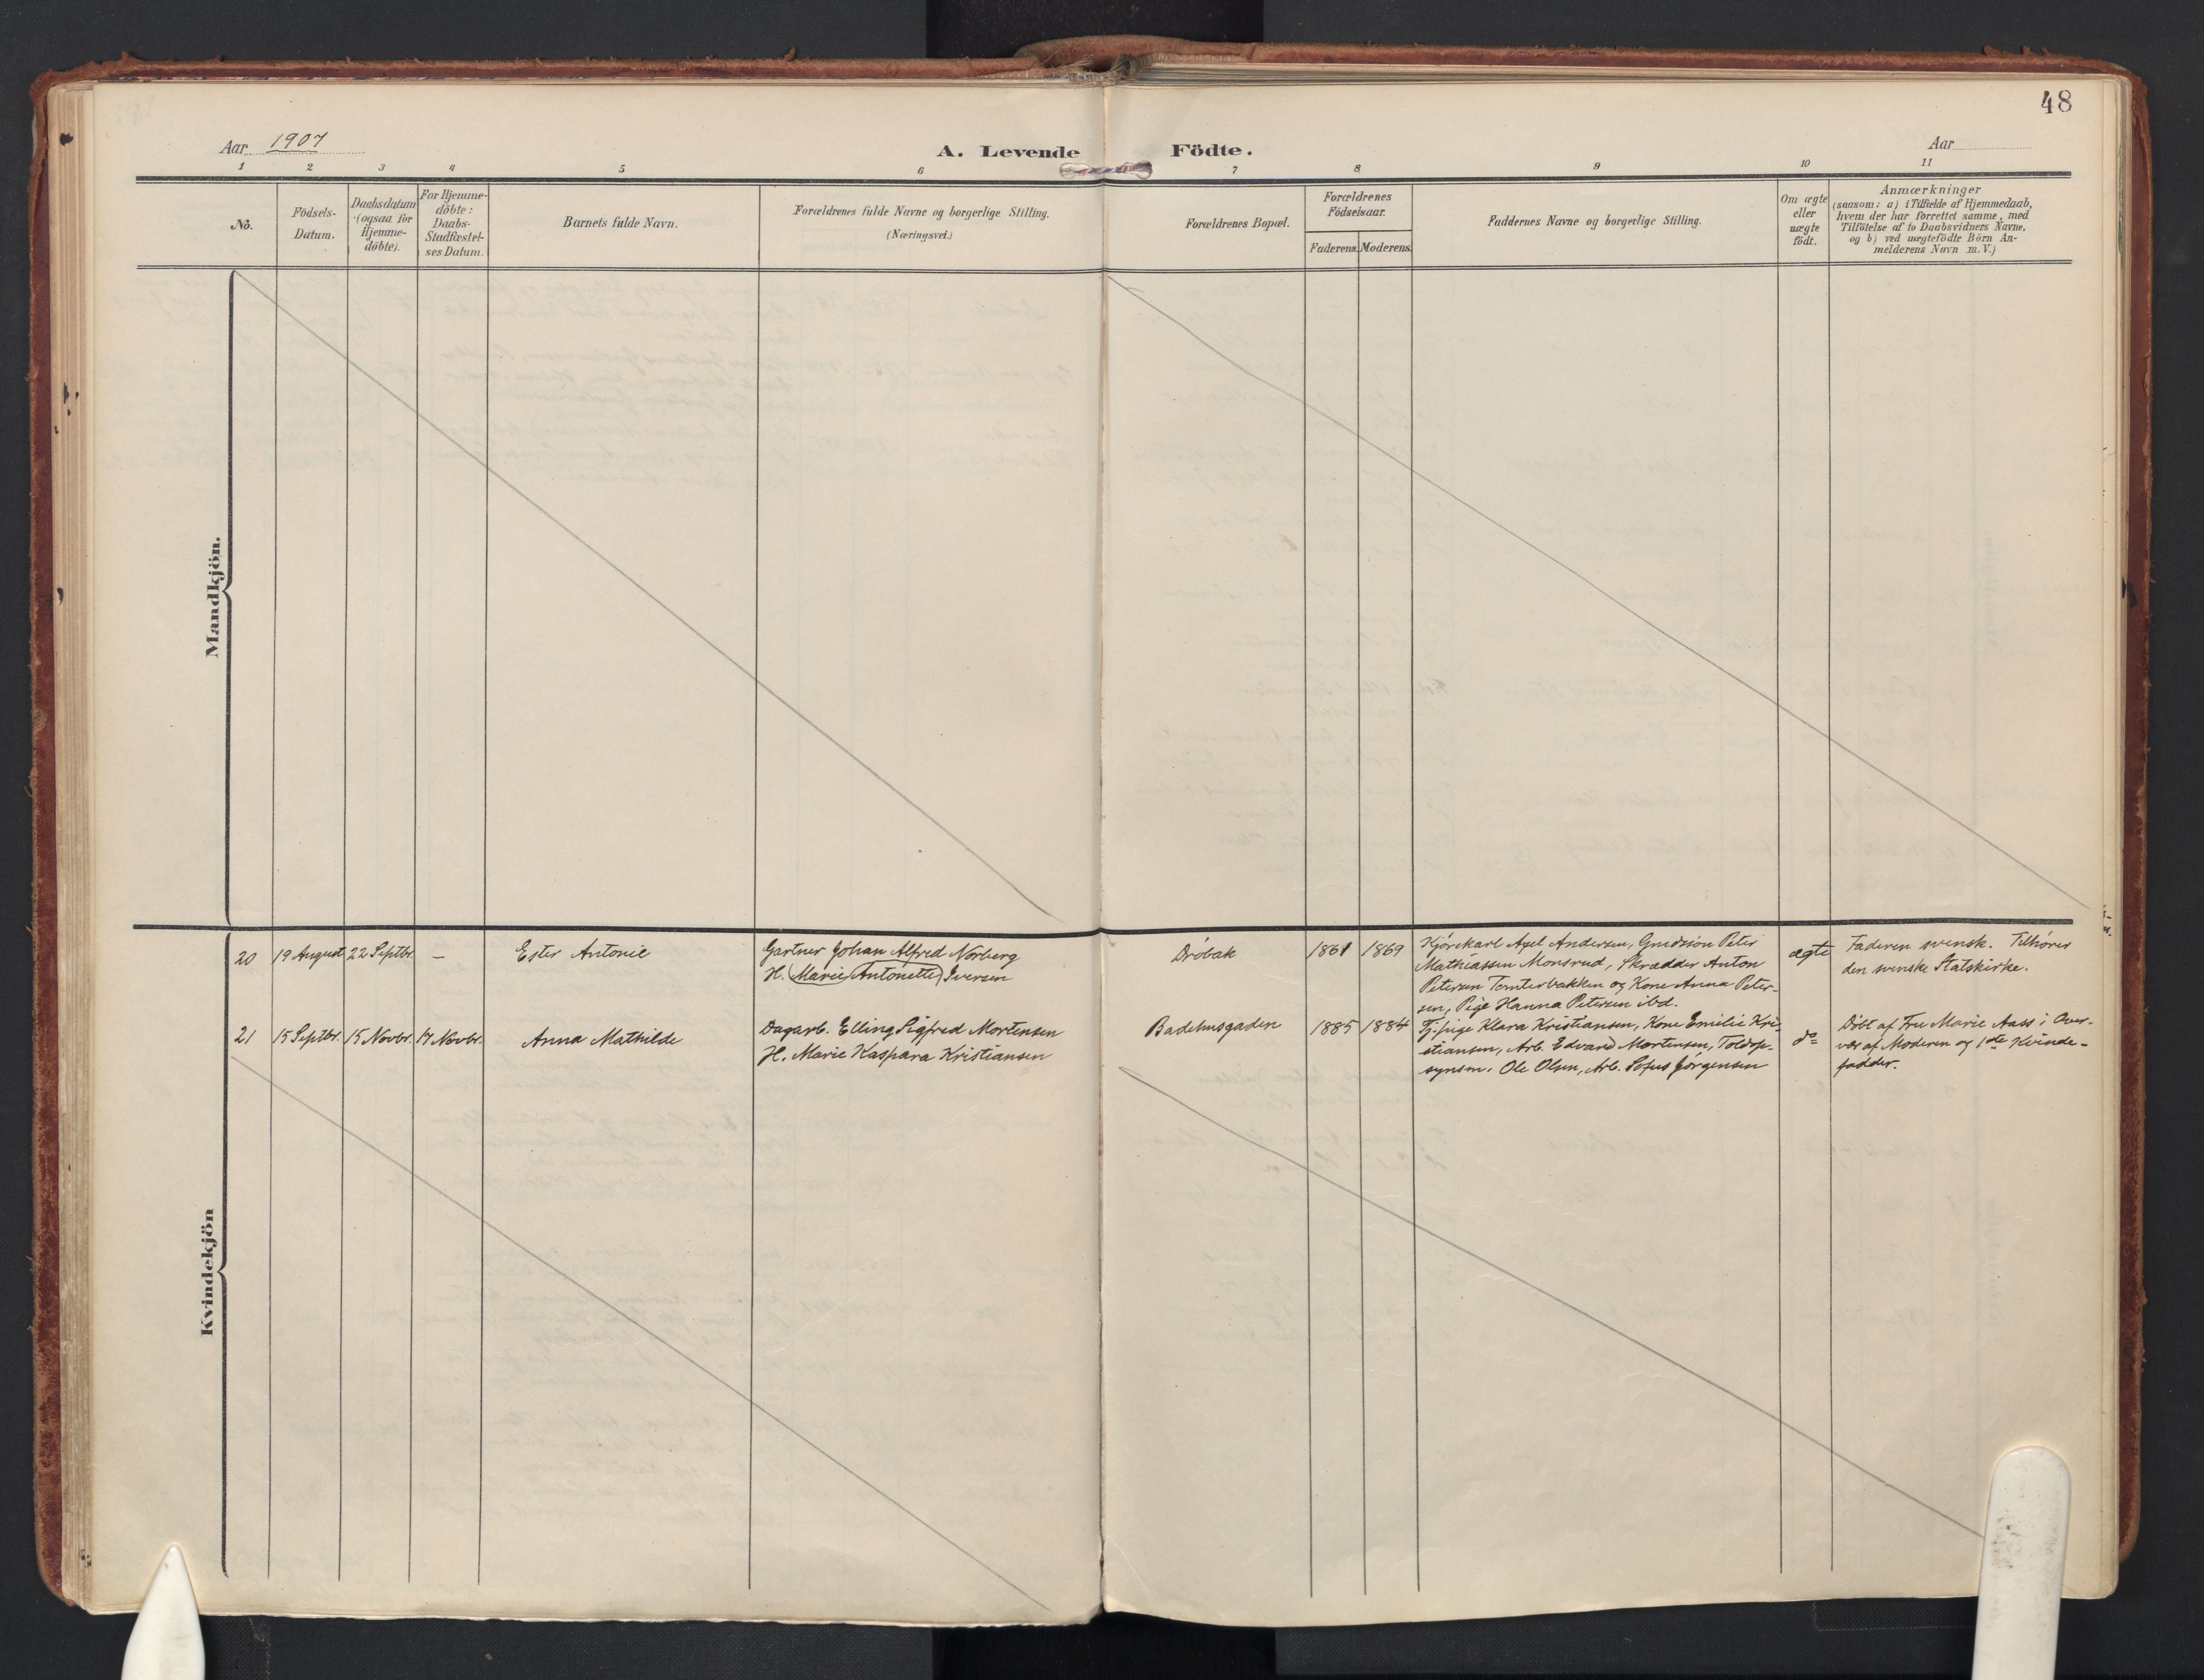 48
Aar 1907
A. Levende Födte.
Aar
1 2 3 4 5 6 7 8 9 10 11
No.
Födsels-
Datum.
Daabsdatum
(ogsaa for
Hjemme-
döbte).
For Hjemme-
döbte:
Daabs-
Stadfæstel-
ses Datum.
Barnets fulde Navn.
Forældrenes fulde Navne og borgerlige Stilling.
(Næringsvei.)
Forældrenes Bopæl.
Forældrenes
Födselsaar.
Faderens. Moderens.
Faddernes Navne og borgerlige Stilling.
Om ægte
eller
uægte
födt.
Anmærkninger
(saasom: a) i Tilfælde af Hjemmedaab,
hvem der har forrettet samme, med
Tilföielse af to Daabsvidners Navne,
og b) ved uægtefödte Börn An-
melderens Navn m. V.)
Mandkjön.
Kvindekjön
20
19 August
22 Septbr.
–
Ester Antonie
Gartner Johan Alfred Norberg
H. (Marie Antonette) Iversen
Drøbak
1861
1869
Kjørekarl Axel Andersen, Peter
Mathiassen Monsrud, Skrædder Anton
Petersen Tomterbakken og Kone Anna Peter-
sen, Pige Hanna Petersen ibd.
ægte
Faderen svensk. Tilhører
den svenske Statskirke.
21
15 Septbr.
15 Novbr.
17 Novbr.
Anna Mathilde
Dagarb. Elling Sigfred Mortensen
H. Marie Kaspara Kristiansen
Badehusgaden
1885
1884
Tj.pige Klara Kristiansen, Kone Emilie Kri-
stiansen, Arb. Edvard Mortensen, Toldop-
synsm. Ole Olsen, Arb. Sofus Jørgensen
do
Døbt af Fru Marie Aass i Over-
vær af Moderen og 1ste Kvinde-
fadder.